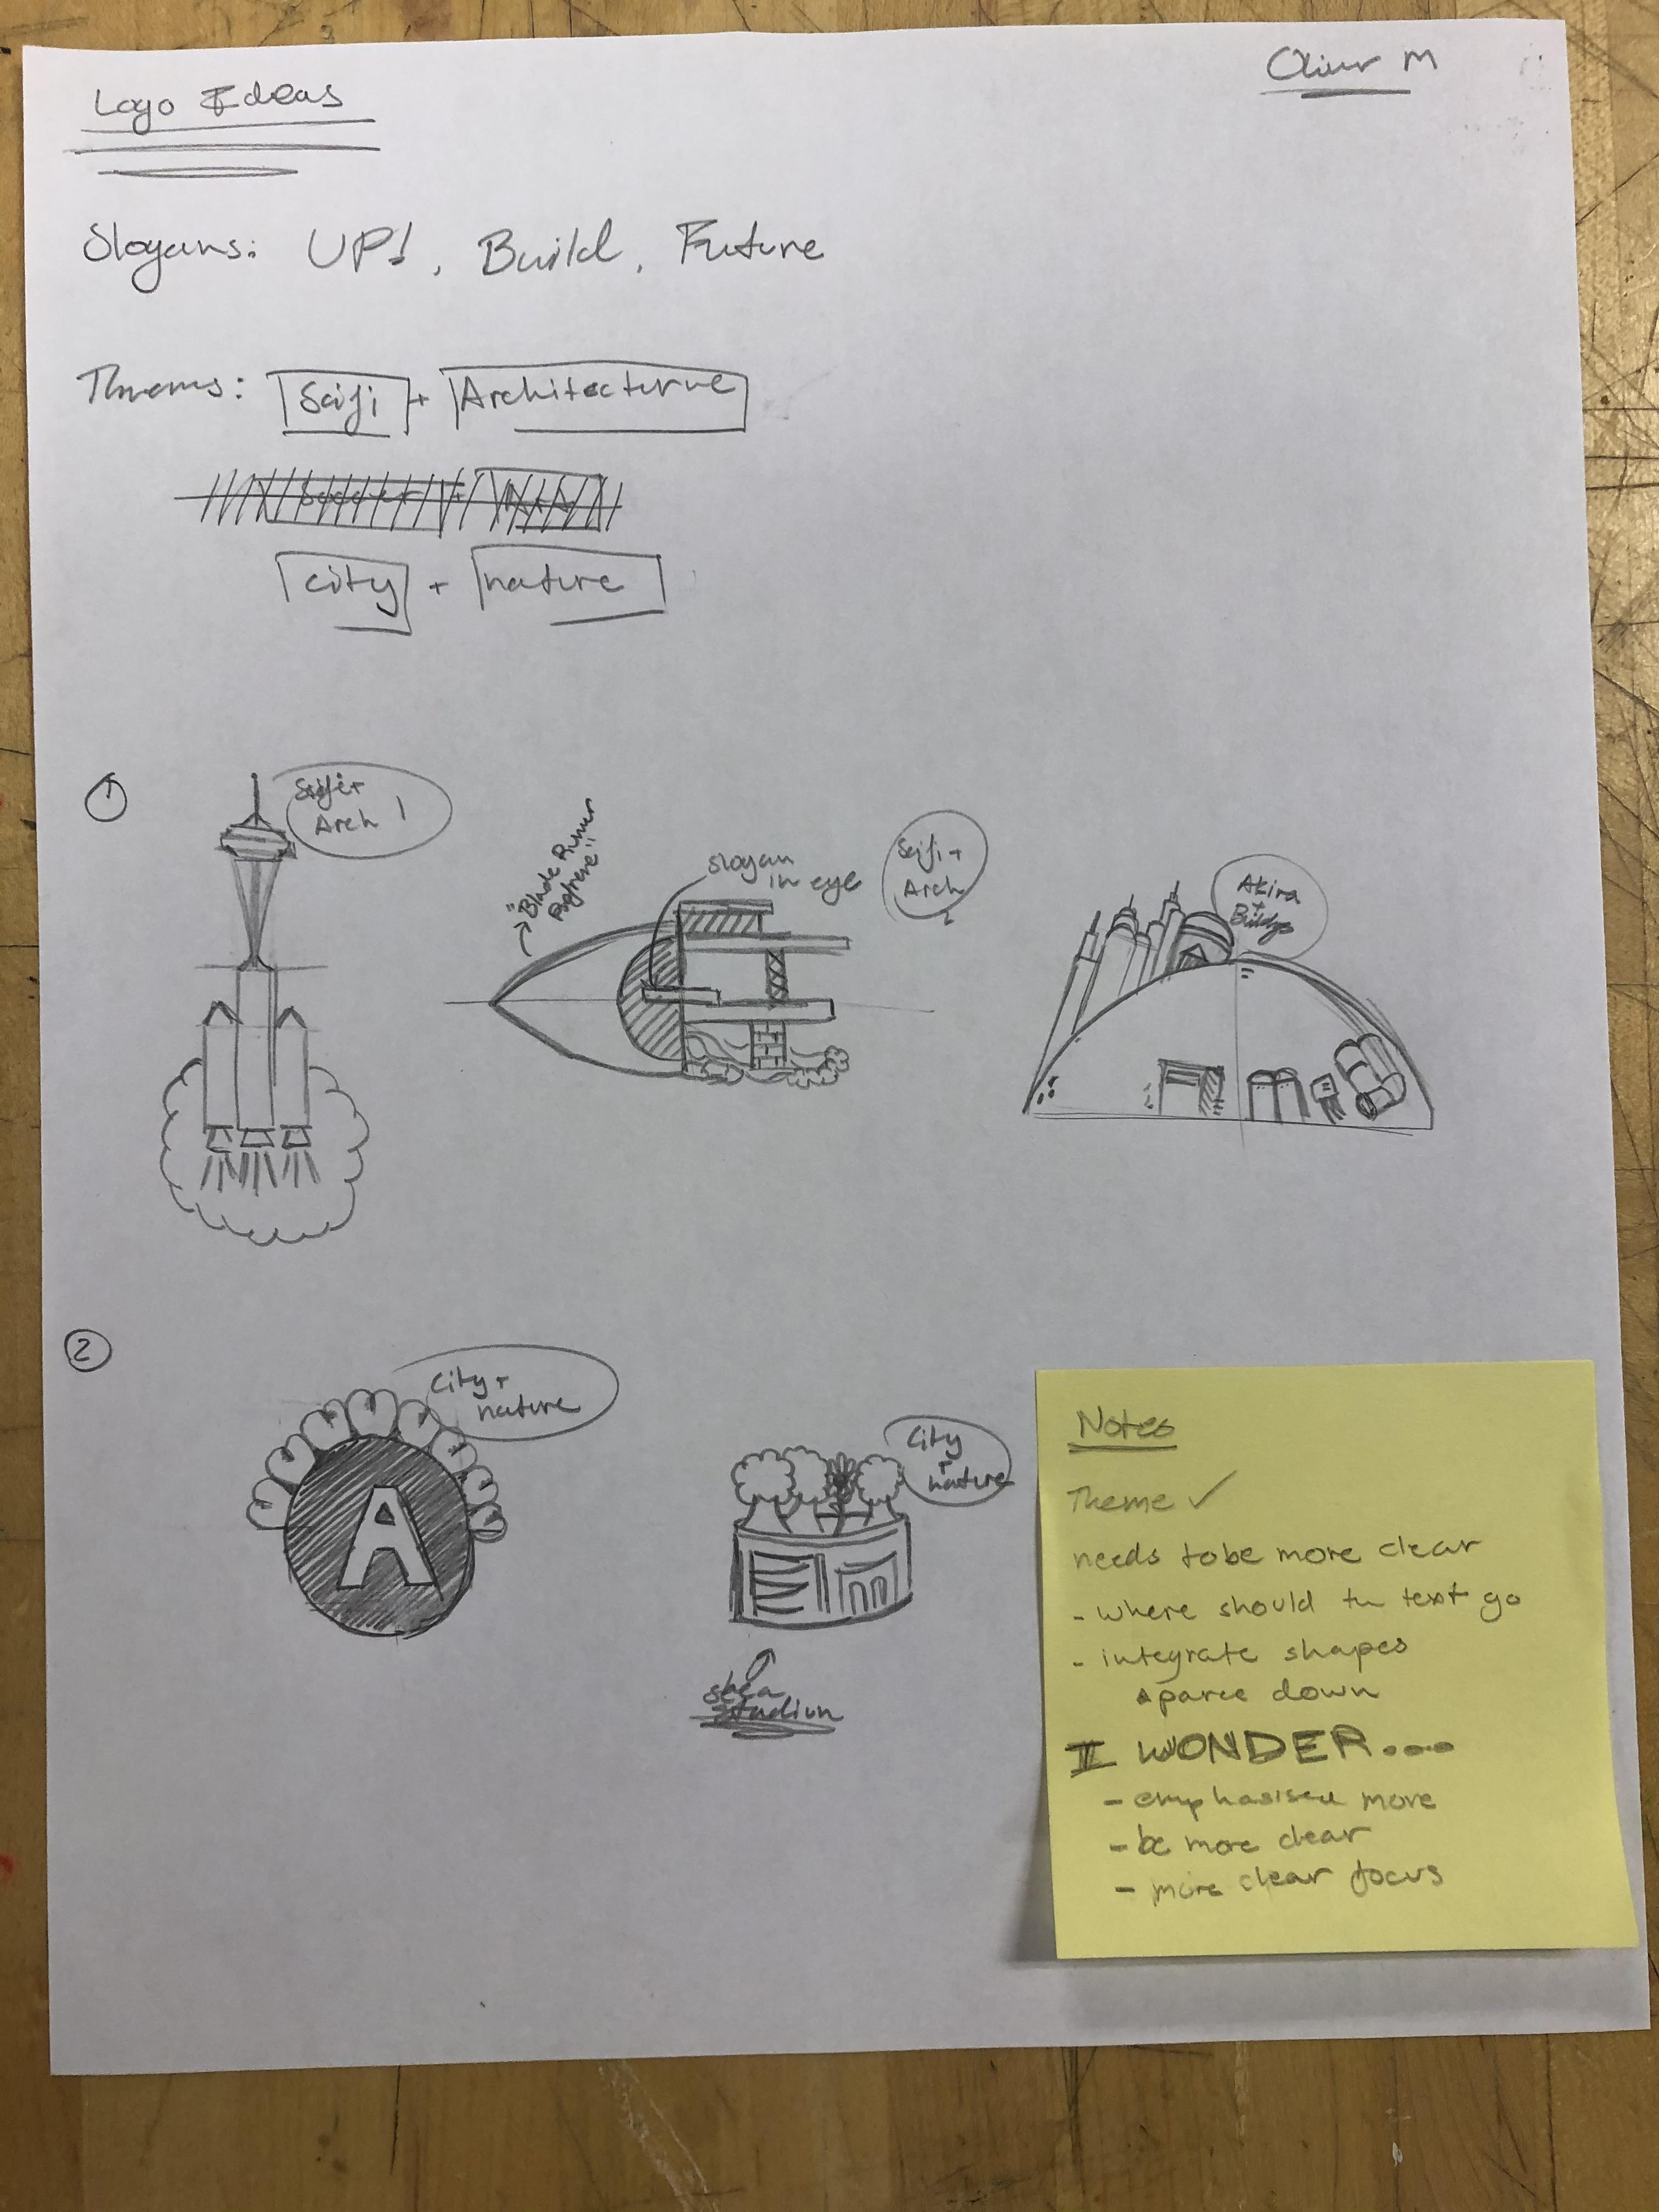 Logo Ideas
Oliver M
Slogans: UP!, Build, Future
Themes: Scifi + Architecturue
city + nature
1
Scifi +
Arch 1
"Blade Runner
slogan
in eye
Scifi +
Arch
2
Akira
+
Bulidgs
2
City +
nature
City
+
nature
shea
stadium
Notes
Theme ✓
needs to be more clear
- where should the text go
- integrate shapes
& parce down
I WONDER...
- emphasiseu more
- be more clear
- more clear focus
A